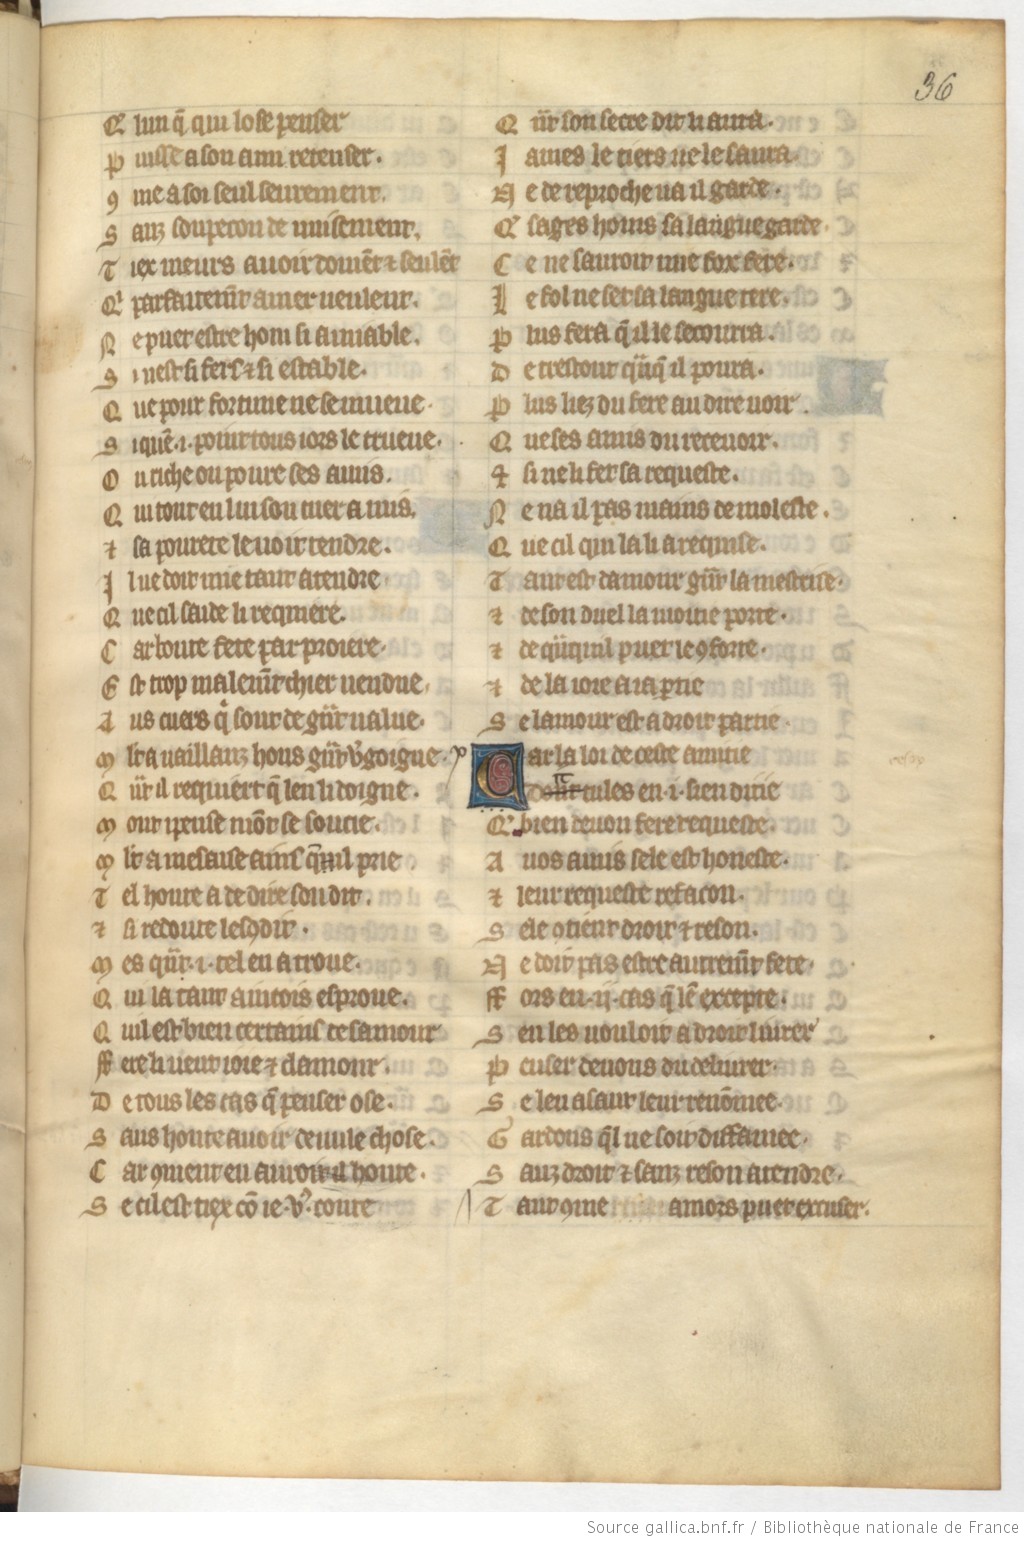 36
Q lun q̃ qui lose penser
P uisse a son ami retenser.
9 me a soi seul seurement.
S anz soupecon de uuisement.
T iex meurs auoir doiuẽt & seulẽt
Qͥ parfaitemẽt amer ueulent.
N e puet estre hom si amiable.
S i nest si fers & si estable.
Q ue pour fortune ne se mueue.
S iquẽ .i. point touz iors le trueue.
O u riche ou poure ses amis.
Q ui tout en lui son cuer a mis.
⁊ sa pourete le uoit tendre.
I l ne doit mie tant atendre
Q ue cil saide li requiere.
C ar bonte fete par proiere.
E st trop malemẽt chier uendue.
A us cuers qͥ sont de grãt ualue.
M lt a uaillanz hons grãt v̾goigne
Q ãt il requiert q̃ len li doigne.
M out i pense mõlt se soucie.
M lt a mesaise ains quil prie
T el honte a de dire son dit.
⁊ si redoute lescõdit.
M es quãt .i. tel en a troue.
Q ui la tant aincois esproue.
Q uil est bien certains de samour
ff ere li ueut ioie ⁊ clamour.
D e tous les cas q̃ penser ose.
S ans honte auoir de nule chose.
C ar 9ment en auroit il honte.
S e cil est tiex cõ ie .v̾. conte
Q ãt son secre dit li aura.
I ames le tiers ne le saura
N e de reproche na il garde.
Q̾ sages homs sa langue garde.
C e ne sauroit mie fox fere.
I e fol ne set sa langue tere.
P lus fera q̃ il le secourra.
D e trestout quãq̃ il poura.
P lus liez du fere au dire uoir.
Q ue ses amis du receuoir.
⁊ si ne li fet sa requeste.
N e na il pas mains de moleste.
Q ue cil qui la li a requise.
T ant est damour grãt la mestrise.
⁊ de son duel la moitie porte.
⁊ de quãquil puet le 9forte.
⁊ de la ioie a sa partie
S e lamour est a droit partie.
C ar la loi de ceste amitie
dont tules en .i. sien ditie
Q̾ bien deuon fere requeste.
A uos amis sele est honeste.
⁊ leur requeste refacon.
S ele 9tient droit & reson.
N e doit pas estre autremẽt fete.
ff ors en .ij. cas q̃ lẽ excepte.
S en les uouloit a droit liurer
P enser deuons du deliurer.
S e len asaut leur renõmee.
G ardons q̃l ne soit diffamee.
S anz droit & sanz reson atendre.
T ant 9me amors puet excuser.
Source gallica.bnf.fr / Bibliothèque nationale de France